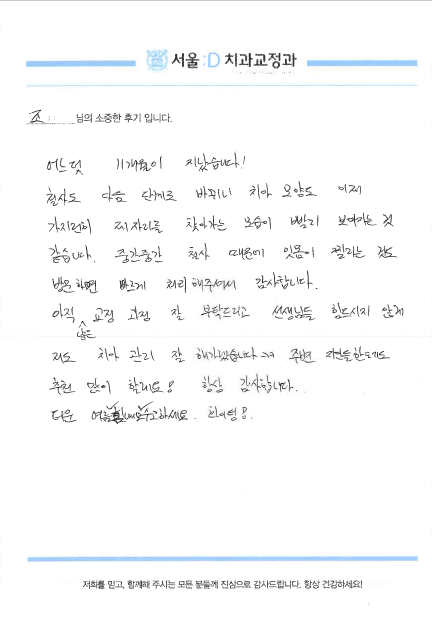 서울:D 치과교정과
조 님의 소중한 후기 입니다.
어느덧 11개월이 지났습니다!
철사도 다음 단계로 바뀌니 치아 모양도 이제
가지런히 제자리를 찾아가는 모습이 빨리 보여지는 것
같습니다. 중간중간 철사 때문에 잇몸이 찔리는 것도
방문하면 빠르게 처리해주셔서 감사합니다.
아직 남은 교정 과정 잘 부탁드리고 선생님들 힘드시지 않게
저도 치아 관리 잘 해가겠습니다 >< 주변 지인들한테도
추천 많이 할게요! 항상 감사합니다.
더운 여름 수고하세요.
저희를 믿고, 함께해 주시는 모든 분들께 진심으로 감사드립니다. 항상 건강하세요!